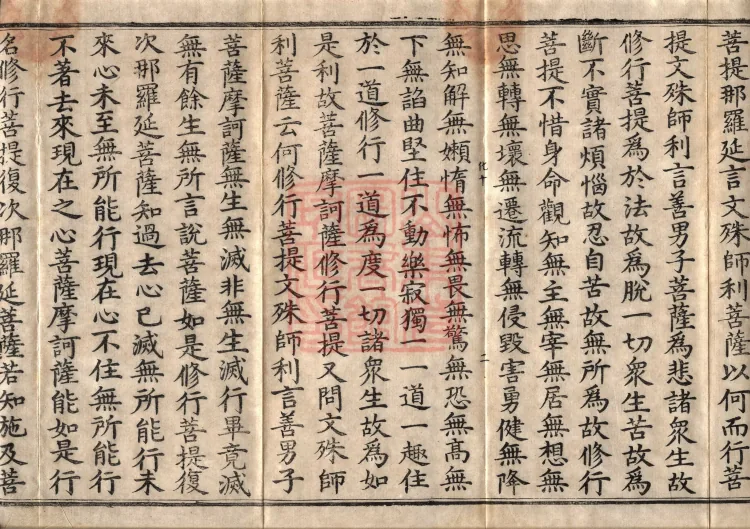 菩提那羅延言文殊師利菩薩以何而行菩
提文殊師利言善男子菩薩為悲諸衆生故
修行菩提為於法故為脫一切衆生苦故為
斷不實諸煩惱故忍自苦故無所為故修行
菩提不惜身命觀知無主無宰無居無想無
思無轉無壞無遷流轉無侵毀害勇健無降
二
無知解無嬾惰無怖無畏無驚無恐無髙無
下無諂曲堅住不動樂寂獨一一道一趣住
於一道修行一道為度一切諸衆生故為如
是利故菩薩摩訶薩修行菩提又問文殊師
利菩薩云何修行菩提文殊師利言善男子
菩薩摩訶薩無生無滅非無生滅行畢竟滅
無有餘生無所言說菩薩如是修行菩提復
次那羅延菩薩知過去心已滅無所能行未
來心未至無所能行現在心不住無所能行
不著去來現在之心菩薩摩訶薩能如是行
名修行菩提復次那羅延菩薩若知施及菩